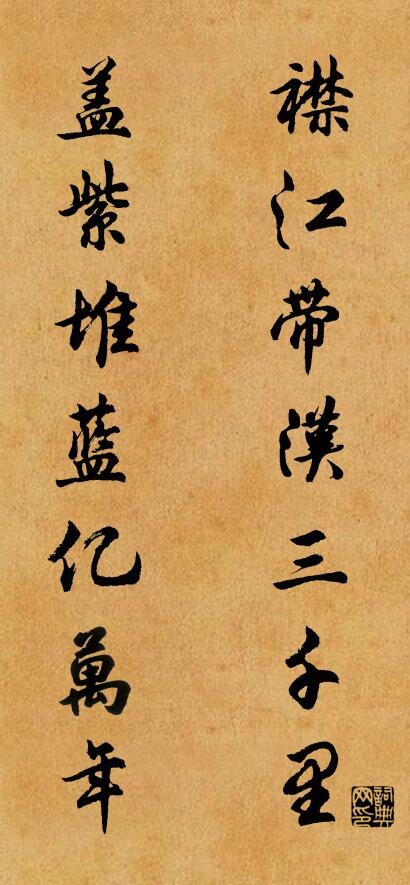 襟江带漢三千里
盖紫堆蓝亿萬年
詞典网印